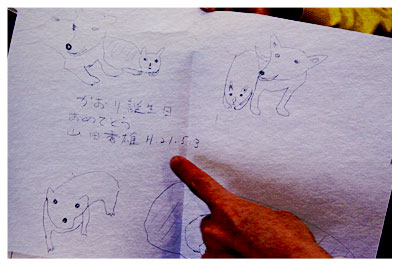 かおり誕生日
おめでとう
山田秀雄 H.21.5.3